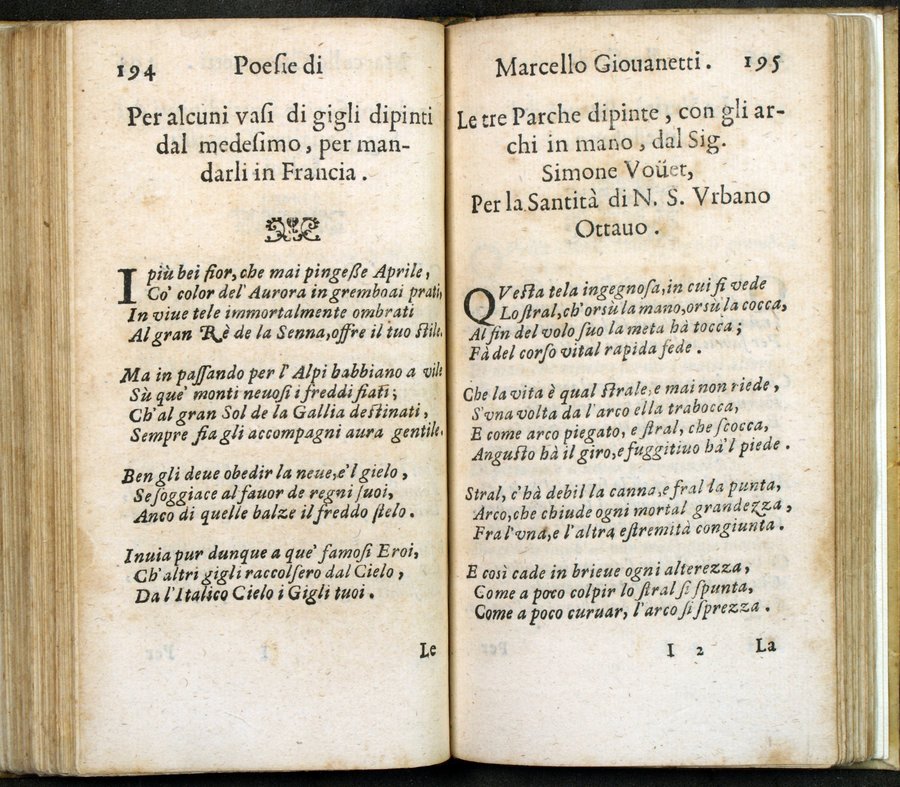 194 Poesie di
Per alcuni vasi di gigli dipinti
dal medesimo, per man-
darli in Francia.
I più bei fior, che mai pingesse Aprile,
Co' color del' Aurora in gremboai prati,
In viue tele immortalmente ombrati
Al gran Rè de la Senna, offre il tuo stile.
Ma in passando per l' Alpi babbiano a vile
Sù que' monti neuosi i freddi fiati;
Ch'al gran Sol de la Gallia destinati,
Sempre fia gli accompagni aura gentile.
Ben gli deue obedir la neue, e'l gielo,
Se soggiace al fauor de regni suoi,
Anco di quelle balze il freddo stelo.
Inuia pur dunque a que' famosi Eroi,
Ch'altri gigli raccolsero dal Cielo,
Da l'Italico Cielo i Gigli tuoi.
Le
Marcello Giouanetti. 195
Le tre Parche dipinte, con gli ar-
chi in mano, dal Sig.
Simone Voüet,
Per la Santità di N. S. Vrbano
Ottauo.
QVesta tela ingegnosa, in cui si vede
Lo stral, ch'or sù la mano, or sù la cocca,
Al fin del volo suo la meta hà tocca;
Fà del corso vital rapida fede.
Che la vita è qual strale, e mai non riede,
S'vna volta da l'arco ella trabocca,
E come arco piegato, e stral, che scocca,
Angusto hà il giro, e fuggitiuo hà'l piede.
Stral, c'hà debil la canna, e fral la punta,
Arco, che chiude ogni mortal grandezza,
Fra l'vna, e l'altra estremità congiunta.
E così cade in brieue ogni alterezza,
Come a poco colpir lo stral si spunta,
Come a poco curuar, l'arco si sprezza.
I 2 La